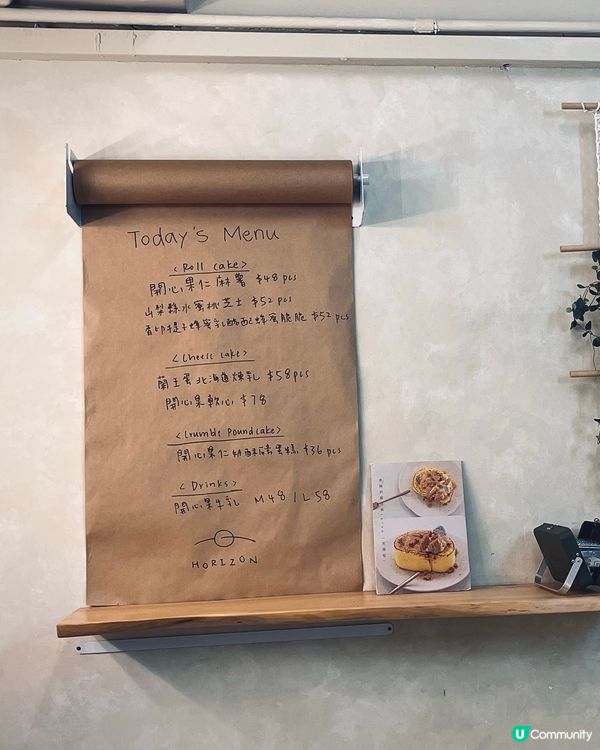 Today's Menu
<Roll Cake>
開心果仁麻薯 $48 pcs
山梨縣水蜜桃芝士 $52 pcs
蜂蜜乳酪配蜂蜜脆脆 $52 pcs
<Cheese Cake>
蘭王蛋北海道煉乳 $58 pcs
開心果軟心 $78
<Crumble Poundcake>
開心果仁奶酥磅蛋糕 $36 pcs
<Drinks>
開心果牛乳 M48 / L58
HORIZON
U Community